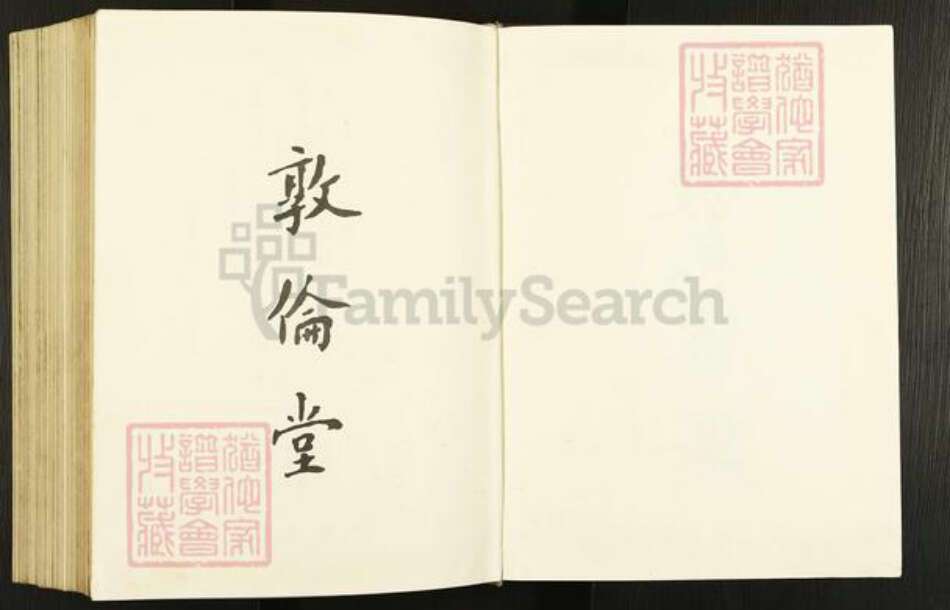 猶他家
譜學會
收藏
敦倫堂
猶他家
譜學會
收藏
FamilySearch